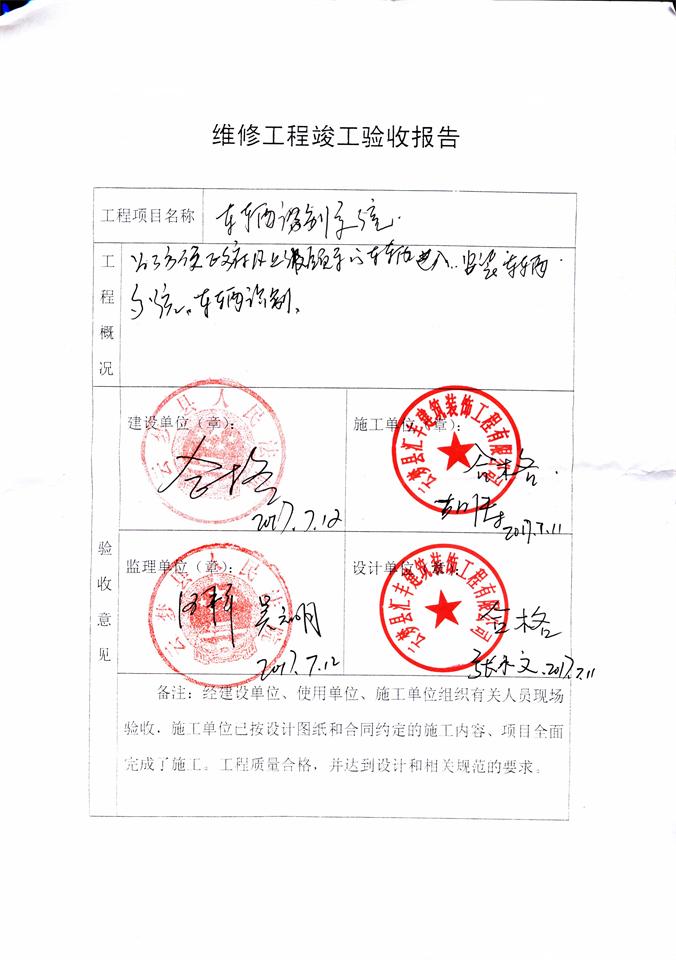 维修工程竣工验收报告
工程项目名称
车辆识别系统
工程概况
车辆识别。
验收意见
建设单位（章）：
云梦县人民法院
合格
2017.7.12
施工单位（章）：
云梦县汇丰建筑装饰工程有限公司
合格
2017.7.11
监理单位（章）：
云梦县人民法院
2017.7.12
设计单位（章）：
云梦县汇丰建筑装饰工程有限公司
合格
张永文 2017.7.11
备注：经建设单位、使用单位、施工单位组织有关人员现场
验收，施工单位已按设计图纸和合同约定的施工内容、项目全面
完成了施工。工程质量合格，并达到设计和相关规范的要求。